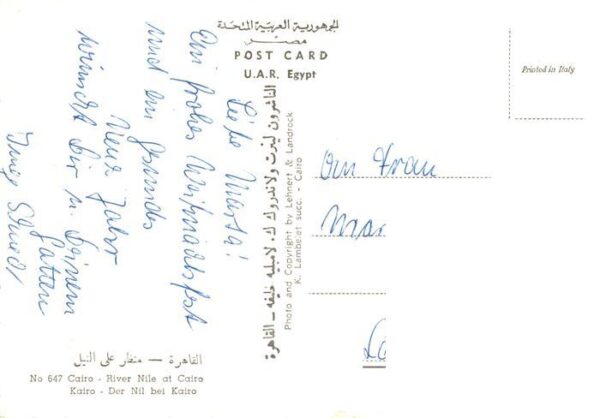 الجمهورية العربية المتحدة
مصر
POST CARD
U.A.R. Egypt
Printed in Italy
Liebe Marta!
Ein frohes Weihnachtsfest
und ein gesundes
Neue Jahr
wünscht Dir u. Deinem
Gatten
الناشرون لينرت ولاندروك ك. لامبليه خليفه - القاهرة
Photo and Copyright by Lehnert & Landrock
K. Lambelet succ. - Cairo
Frau
القاهرة — منظر على النيل
No 647 Cairo - River Nile at Cairo
Kairo - Der Nil bei Kairo